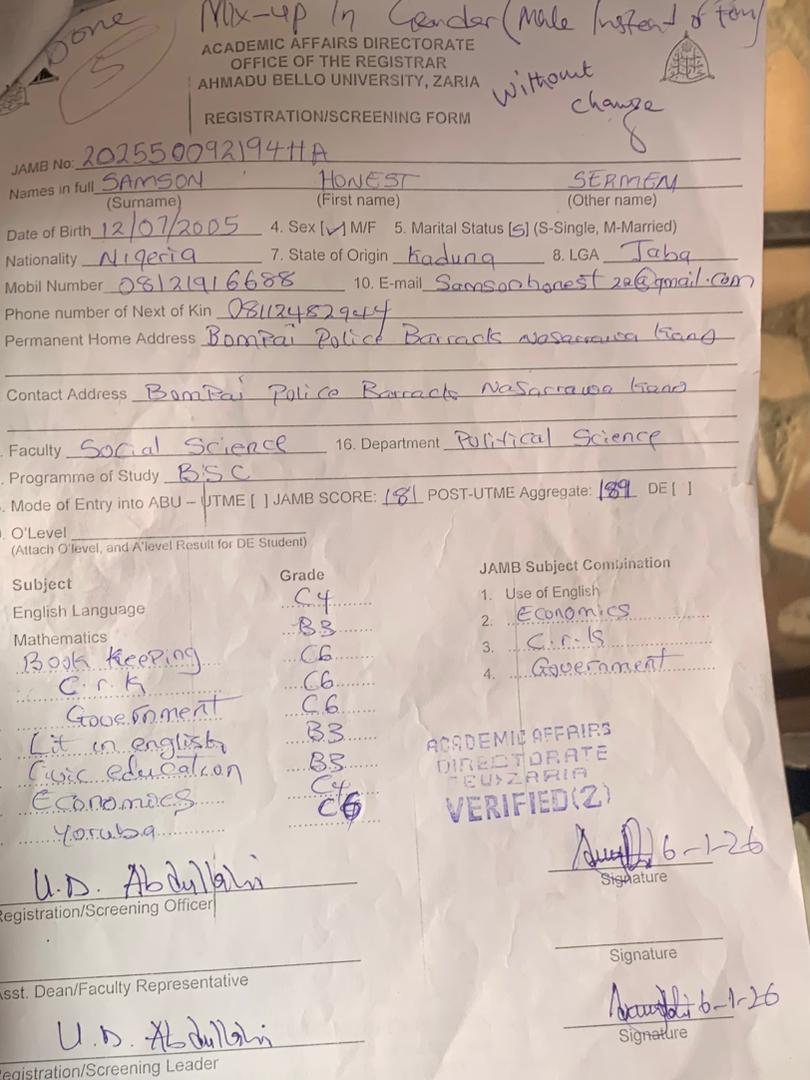 Mix-up In Gender (Male Instead of fem)
Done
5
ACADEMIC AFFAIRS DIRECTORATE
OFFICE OF THE REGISTRAR
AHMADU BELLO UNIVERSITY, ZARIA
Without
change
REGISTRATION/SCREENING FORM
JAMB No: 202550092194HA
Names in full SAMSON HONEST SERMEN
(Surname) (First name) (Other name)
Date of Birth 12/07/2005 4. Sex [✓] M/F 5. Marital Status [S] (S-Single, M-Married)
Nationality Nigeria 7. State of Origin Kaduna 8. LGA Jaba
Mobil Number 08121916688 10. E-mail Samsonhonest22@gmail.com
Phone number of Next of Kin 08112482944
Permanent Home Address Bompai Police Barracks Nasarrawa Kano
Contact Address Bompai Police Barracks Nasarrawa Kano
Faculty Social Science 16. Department Political Science
Programme of Study BSC
Mode of Entry into ABU – UTME [ ] JAMB SCORE: 181 POST-UTME Aggregate: 189 DE [ ]
O'Level
(Attach O'level, and A'level Result for DE Student)
Subject Grade JAMB Subject Combination
English Language C4 1. Use of English
Mathematics B3 2. Economics
Book Keeping C6 3. C.r.k
C.r.k C6 4. Government
Government C6
Lit in english B3
Civic education B3
Economics C4
Yoruba C6
ACADEMIC AFFAIRS
DIRECTORATE
ZARIA
VERIFIED(2)
U.D. Abdullahi 6-1-26
Registration/Screening Officer Signature
Asst. Dean/Faculty Representative Signature
U.D. Abdullahi 6-1-26
Registration/Screening Leader Signature